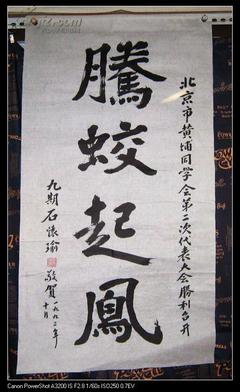 騰蛟起鳳
北京市黄埔同学会第二次代表大会勝利召开
九期石懷瑜
敬賀
一九九二年
十月
Canon PowerShot A3200 IS F2.8 1/60s ISO250 0.7EV